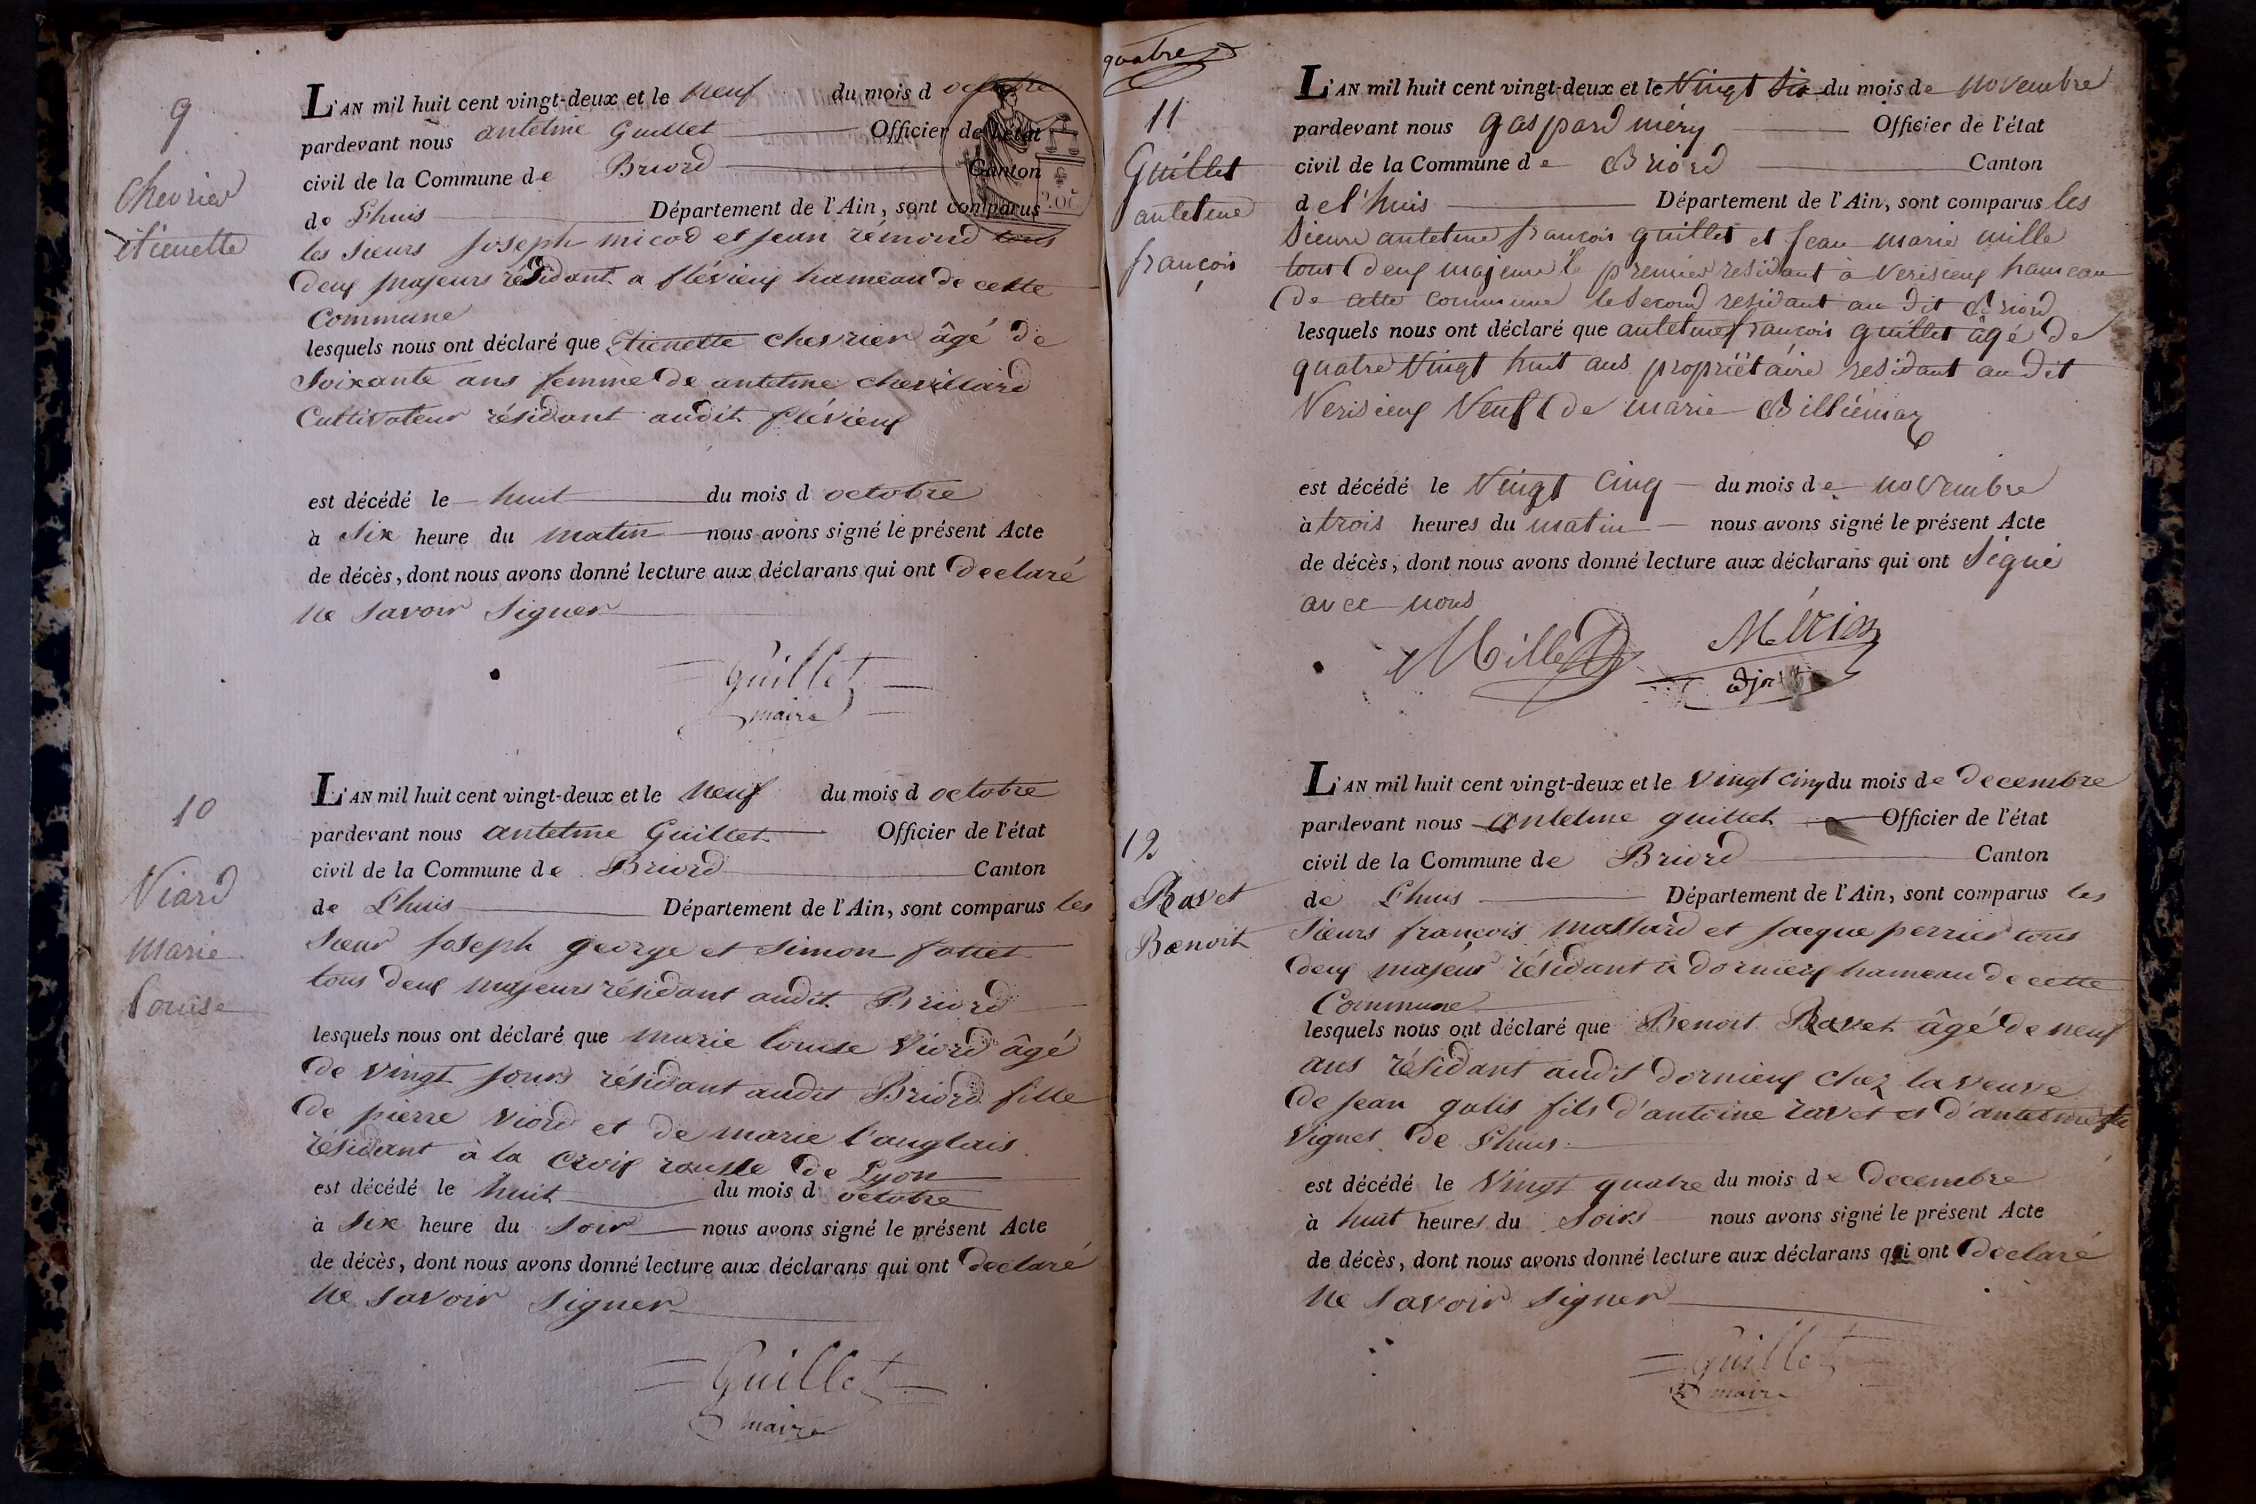 9
Chevrier
étienette
L'AN mil huit cent vingt-deux et le neuf du mois d octobre
pardevant nous antelme Guillet Officier de l'état
civil de la Commune de Briord Canton
de Lhuis Département de l'Ain, sont comparus
les sieurs Joseph micod et jean rémond tous
deux majeurs résidant a flévieux hameau de cette
Commune
lesquels nous ont déclaré que Etienette chevrier âgé de
Soixante ans femme de antelme chevillard
Cultivateur résidant audit flévieux
est décédé le huit du mois d octobre
à Six heure du matin nous avons signé le présent Acte
de décès, dont nous avons donné lecture aux déclarans qui ont declaré
ne Savoir Signer
Guillet
maire
10
Viard
marie
louise
L'AN mil huit cent vingt-deux et le neuf du mois d octobre
pardevant nous antelme Guillet Officier de l'état
civil de la Commune de Briord Canton
de Lhuis Département de l'Ain, sont comparus les
Sieur Joseph george et Simon
tous deux majeurs résidant audit Briord
lesquels nous ont déclaré que marie louise Viord âgé
de vingt jours résidant audit Briord fille
de pierre Viord et de marie l'anglais
résidant à la Croix rousse de Lyon
est décédé le huit du mois d octobre
à Six heure du Soir nous avons signé le présent Acte
de décès, dont nous avons donné lecture aux déclarans qui ont déclaré
ne Savoir Signer
Guillet
maire
quatre
11
Guillet
antelme
françois
L'AN mil huit cent vingt-deux et le Vingt Six du mois de novembre
pardevant nous gaspard méry Officier de l'état
civil de la Commune de Briord Canton
de l'huis Département de l'Ain, sont comparus les
Sieurs antelme françois guillet et Jean marie mille
tous deux majeurs le premier residant à Verisieux hameau
de cette commune le Second residant au dit Briord
lesquels nous ont déclaré que antelme françois guillet âgé de
quatre Vingt huit ans propriétaire residant au dit
Verisieux Veuf de marie Billiémaz
est décédé le Vingt Cinq du mois de novembre
à trois heures du matin nous avons signé le présent Acte
de décès, dont nous avons donné lecture aux déclarans qui ont Signé
avec nous
Mille
12
Ravet
Benoit
L'AN mil huit cent vingt-deux et le vingt cinq du mois de decembre
pardevant nous antelme guillet Officier de l'état
civil de la Commune de Briord Canton
de Lhuis Département de l'Ain, sont comparus les
Sieurs françois mallard et Jacque perrier tous
deux majeur résidant à dornieux hameau de cette
Commune
lesquels nous ont déclaré que Benoit Ravet âgé de neuf
ans résidant audit dornieux chez la veuve
de jean galis fils d'antoine ravet et d'antelmette
Vignet de Lhuis
est décédé le Vingt quatre du mois de decembre
à huit heures du Soirs nous avons signé le présent Acte
de décès, dont nous avons donné lecture aux déclarans qui ont declaré
ne Savoir Signer
Guillet
maire